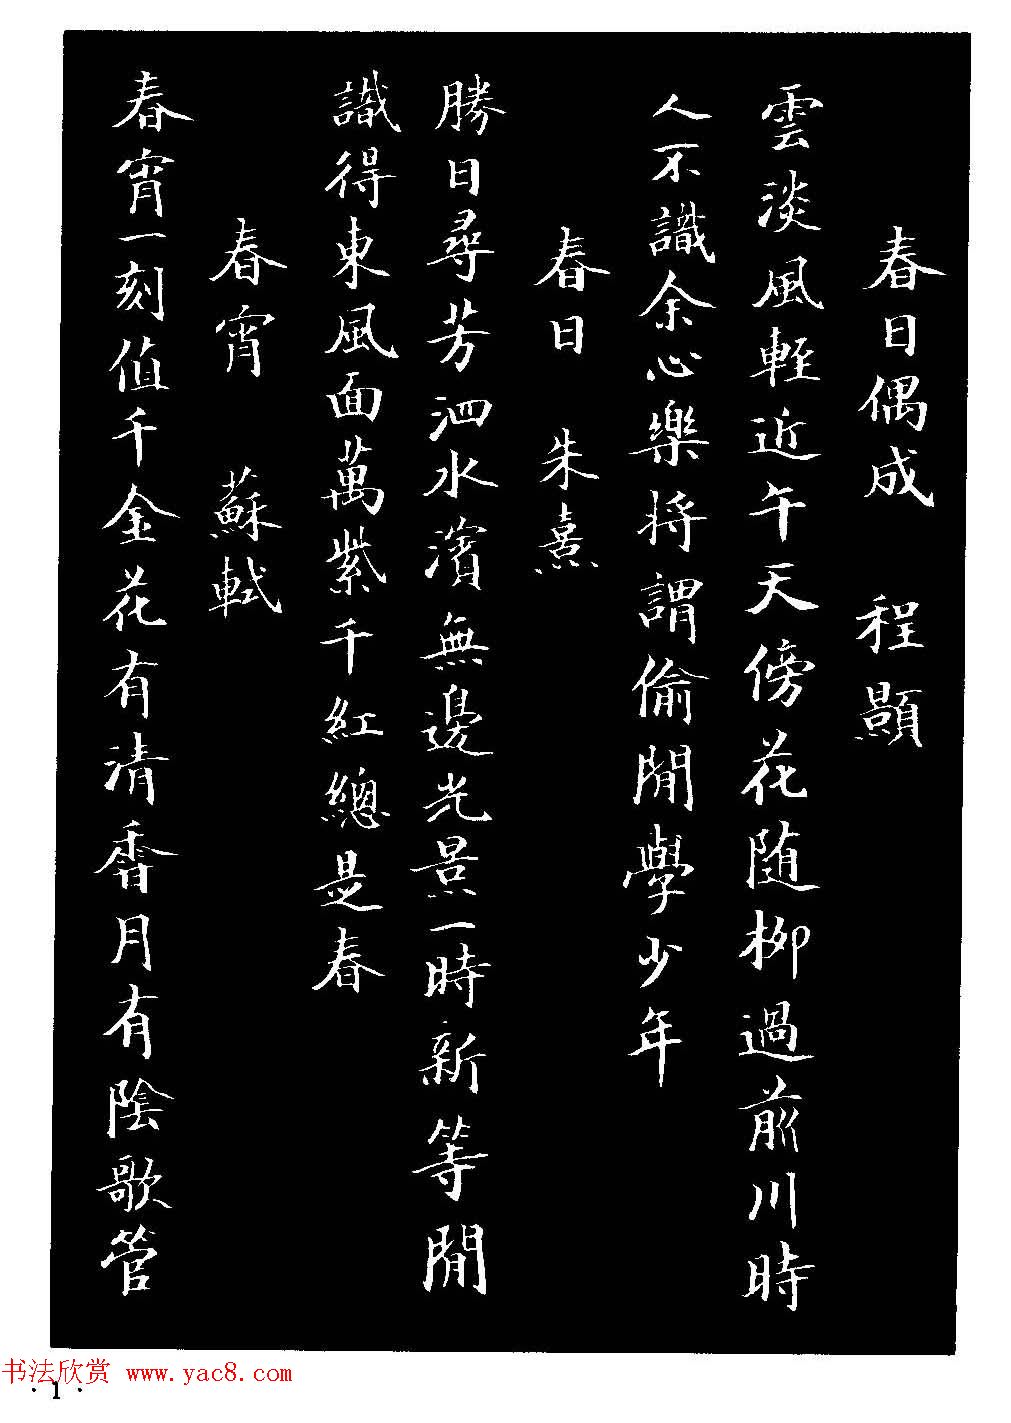 春日偶成 程顥
雲淡風輕近午天傍花随柳過前川時
人不識余心樂將謂偷閒學少年
春日 朱熹
勝日尋芳泗水濱無邊光景一時新等閒
識得東風面萬紫千紅總是春
春宵 蘇軾
春宵一刻值千金花有清香月有陰歌管
书法欣赏 www.yac8.com
·1·